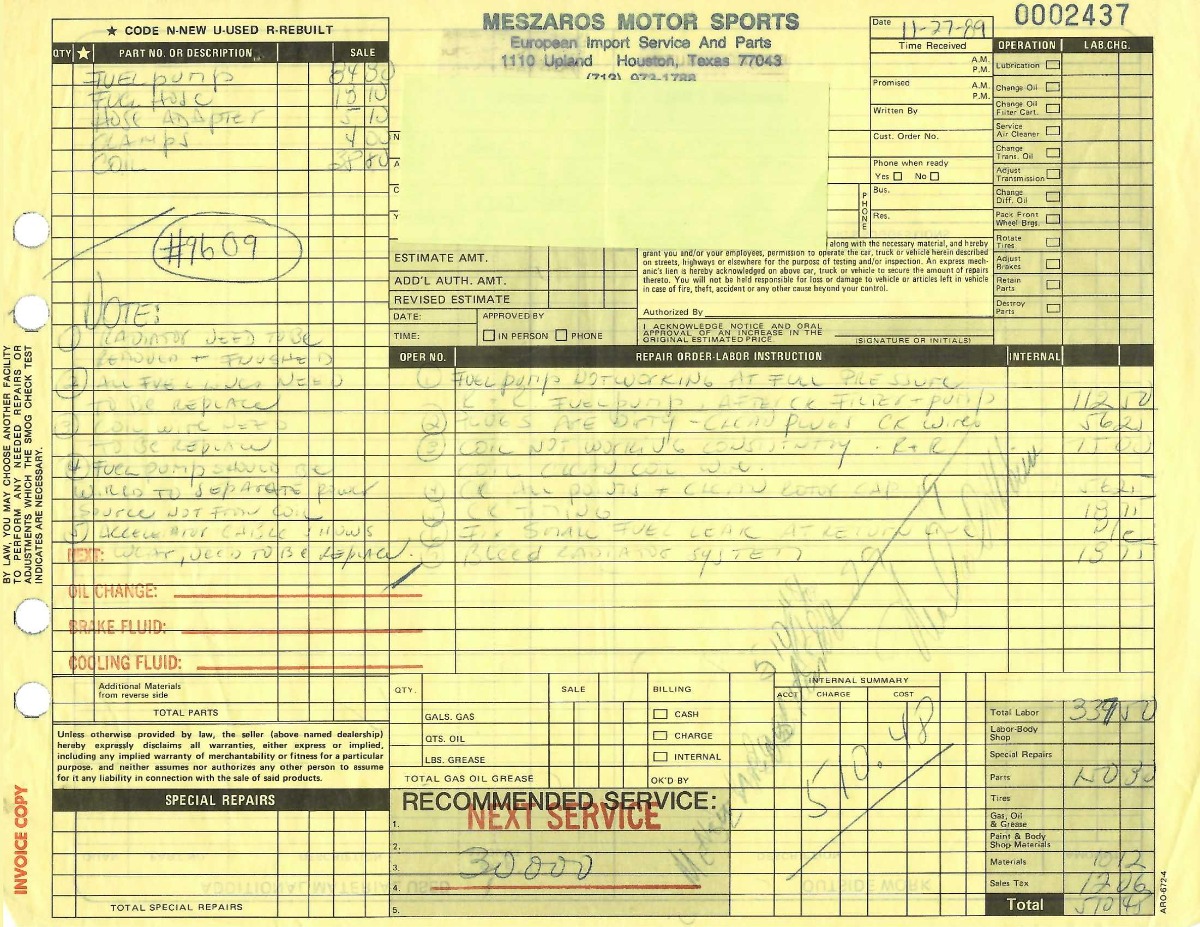 ★ CODE N-NEW U-USED R-REBUILT
QTY ★ PART NO. OR DESCRIPTION SALE
FUEL PUMP 84 30
FUEL HOSE 13 10
HOSE ADAPTER 5 10
CLAMPS 4 00
COIL
#9609
NOTE:
① RADIATOR NEED TO BE
② ALL FUEL LINES NEED
TO BE REPLACE
③ COIL WIRE NEED
TO BE REPLACE
④ FUEL PUMP SHOULD BE
WIRED TO SEPARATE POWER
SOURCE NOT FROM COIL
⑤ ACCELERATOR CABLE SHOWS
WEAR, NEED TO BE REPLACE.
NEXT:
OIL CHANGE:
BRAKE FLUID:
COOLING FLUID:
BY LAW, YOU MAY CHOOSE ANOTHER FACILITY
TO PERFORM ANY NEEDED REPAIRS OR
ADJUSTMENTS WHICH THE SMOG CHECK TEST
INDICATES ARE NECESSARY.
INVOICE COPY
Additional Materials
from reverse side
TOTAL PARTS
Unless otherwise provided by law, the seller (above named dealership)
hereby expressly disclaims all warranties, either express or implied,
including any implied warranty of merchantability or fitness for a particular
purpose, and neither assumes nor authorizes any other person to assume
for it any liability in connection with the sale of said products.
SPECIAL REPAIRS
TOTAL SPECIAL REPAIRS
MESZAROS MOTOR SPORTS
European Import Service And Parts
1110 Upland Houston, Texas 77043
(713) 973-1788
N
A
C
Y
Date 11-27-89
Time Received
A.M.
P.M.
Promised A.M.
P.M.
Written By
Cust. Order No.
Phone when ready
Yes No
PHONE
Bus.
Res.
0002437
OPERATION LAB.CHG.
Lubrication
Change Oil
Change Oil
Filter Cart.
Service
Air Cleaner
Change
Trans. Oil
Adjust
Transmission
Change
Diff. Oil
Pack Front
Wheel Brgs.
Rotate
Tires
Adjust
Brakes
Retain
Parts
Destroy
Parts
along with the necessary material, and hereby
grant you and/or your employees, permission to operate the car, truck or vehicle herein described
on streets, highways or elsewhere for the purpose of testing and/or inspection. An express mech-
anic's lien is hereby acknowledged on above car, truck or vehicle to secure the amount of repairs
thereto. You will not be held responsible for loss or damage to vehicle or articles left in vehicle
in case of fire, theft, accident or any other cause beyond your control.
Authorized By
I ACKNOWLEDGE NOTICE AND ORAL
APPROVAL OF AN INCREASE IN THE
ORIGINAL ESTIMATED PRICE.
(SIGNATURE OR INITIALS)
ESTIMATE AMT.
ADD'L AUTH. AMT.
REVISED ESTIMATE
DATE: APPROVED BY
TIME: IN PERSON PHONE
OPER NO. REPAIR ORDER-LABOR INSTRUCTION INTERNAL
① FUEL PUMP NOT WORKING AT FULL PRESSURE
R + R FUEL PUMP FILTER + PUMP 112 50
② PLUGS ARE DIRTY - CLEAN PLUGS CK WIRES 56 25
③ COIL NOT WORKING CONSTANTLY. R+R
COIL CLEAN COIL
ALL POINTS + CLEAN ROTOR CAP 56 25
CK TIMING 18 75
FIX SMALL FUEL LEAK AT RETURN LINE N/C
BLEED RADIATOR SYSTEM 18 75
QTY. SALE BILLING
GALS. GAS
QTS. OIL
LBS. GREASE
TOTAL GAS OIL GREASE
CASH
CHARGE
INTERNAL
OK'D BY
INTERNAL SUMMARY
ACCT CHARGE COST
510.48
RECOMMENDED SERVICE:
NEXT SERVICE
1.
2.
3. 30000
4.
5.
Total Labor 337 50
Labor-Body
Shop
Special Repairs
Parts 150 30
Tires
Gas, Oil
& Grease
Paint & Body
Shop Materials
Materials 10 12
Sales Tax 12 06
Total 510 48
ARO-672-4